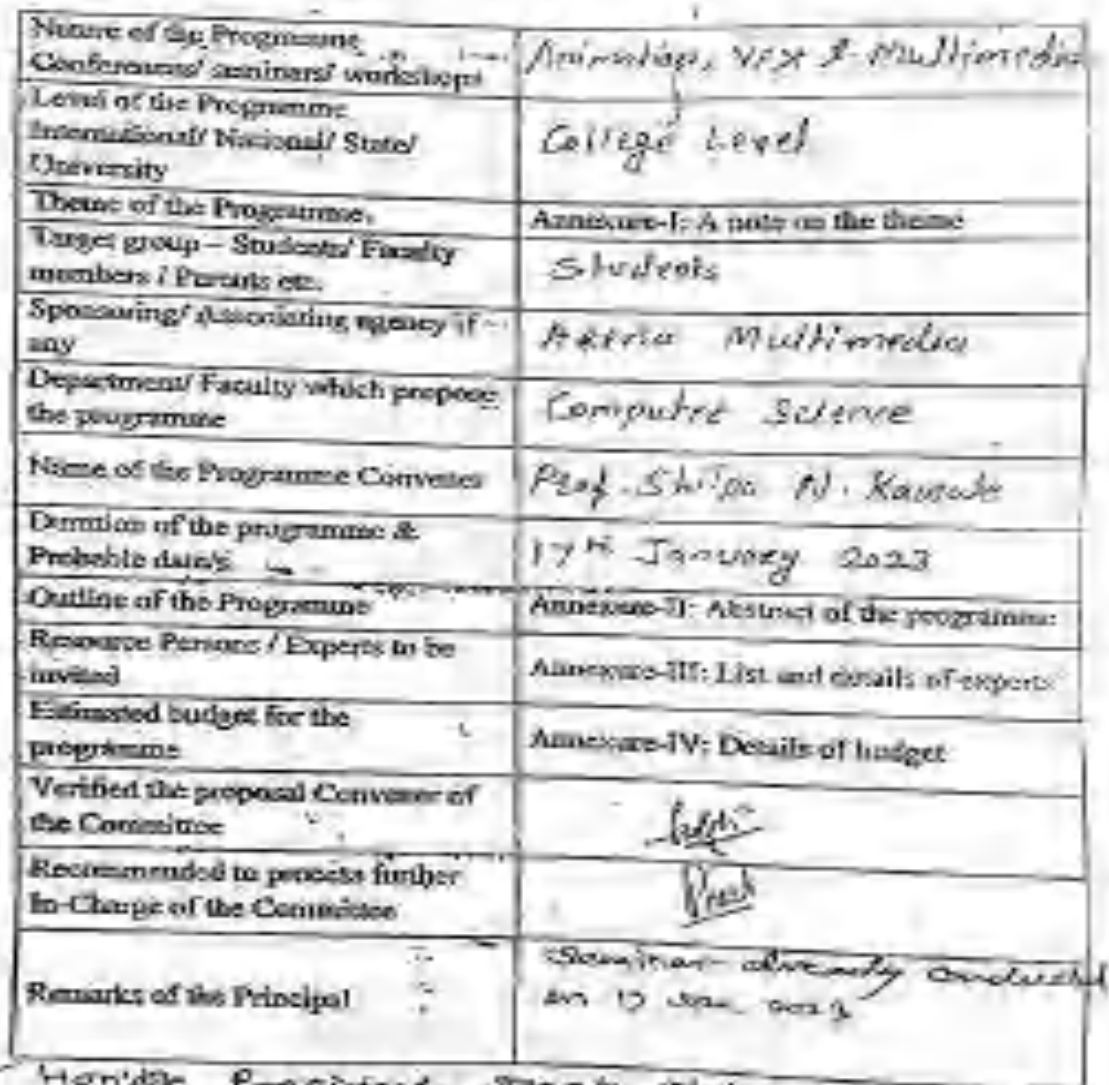 Nature of the Programme
Conferences/ seminars/ workshops
Animation, VFX & Multimedia
Level of the Programme
International/ National/ State/
University
College Level
Theme of the Programme.
Annexure-I: A note on the theme
Target group – Students/ Faculty
members / Parents etc.
Students
Sponsoring/ Associating agency if
any
Multimedia
Department/ Faculty which propose
the programme
Computer Science
Name of the Programme Convener
Prof. Shilpa N.
Duration of the programme &
Probable date/s
17th January 2023
Outline of the Programme
Annexure-II: Abstract of the programme
Resource Persons / Experts to be
invited
Annexure-III: List and details of experts
Estimated budget for the
programme
Annexure-IV: Details of budget
Verified the proposal Convener of
the Committee
Recommended to process further
In-Charge of the Committee
Remarks of the Principal
Seminar already conducted
on 17 Jan 2023